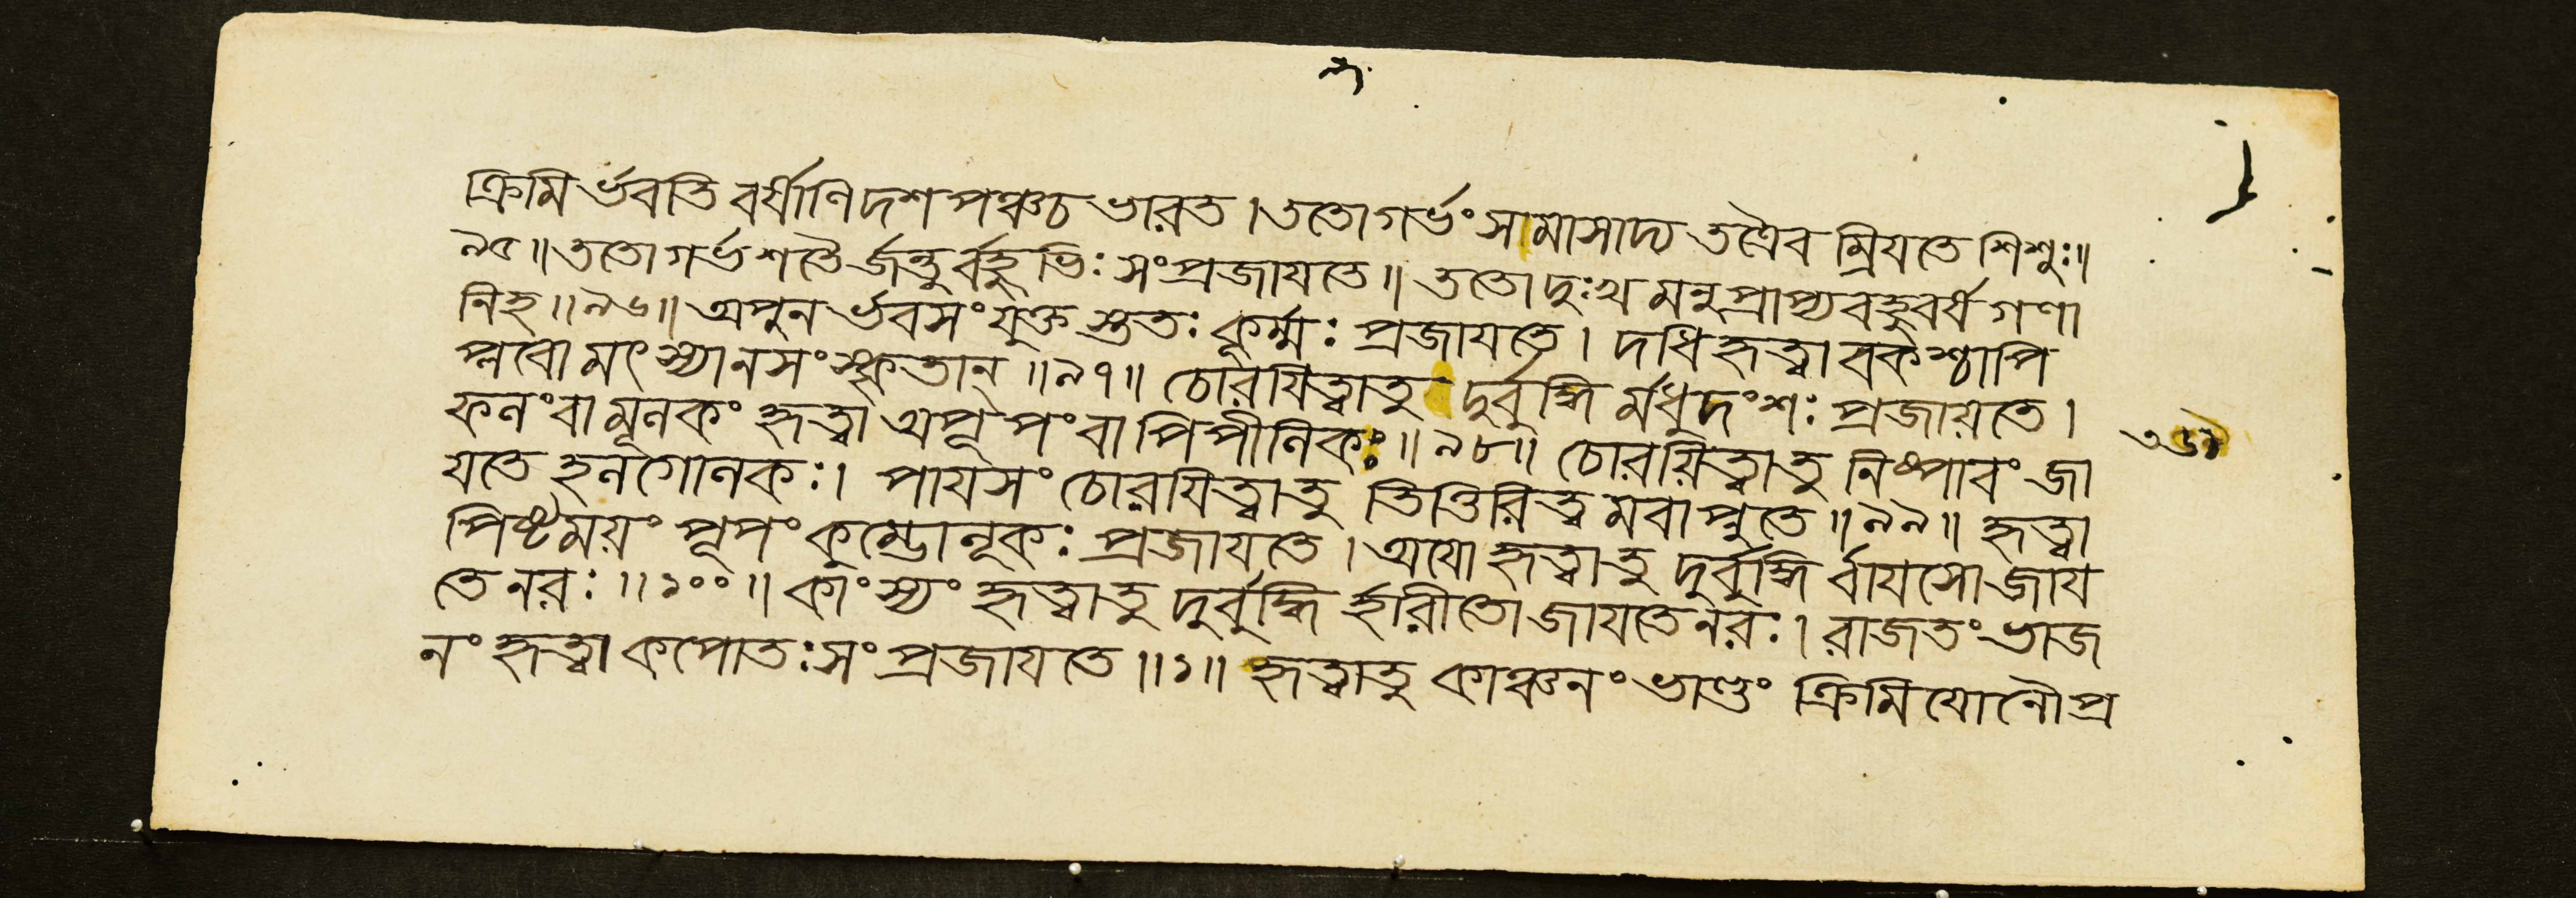 ক্রিমির্ভবতি বর্ষাণি দশ পঞ্চ চ ভারত । ততো গর্ভং সামাসাদ্য তত্রৈব ম্রিয়তে শিশুঃ ॥
৯৫ ॥ ততো গর্ভশতৈর্জন্তুর্বহুভিঃ সংপ্রজাযতে ॥ ততো দুঃখমনুপ্রাপ্য বহুবর্ষগণা
নিহ ॥ ৯৬ ॥ অপুনর্ভবসংযুক্তস্ততঃ কূর্ম্মঃ প্রজাযতে । দধি হৃত্বা বকশ্চাপি
প্লবো মৎস্যানসংস্কৃতান্ ॥ ৯৭ ॥ চোরযিত্বা তু দুর্বুদ্ধির্মধুদংশঃ প্রজায়তে ।
ফলং বা মূলকং হৃত্বা অপূপং বা পিপীলিকঃ ॥ ৯৮ ॥ চোরয়িত্বা তু নিষ্পাবং জা
যতে হলগোলকঃ । পাযসং চোরযিত্বা তু তিত্তিরিত্বমবাপ্নুতে ॥ ৯৯ ॥ হৃত্বা
পিষ্টময়ং পূপং কুম্ভোলূকঃ প্রজাযতে । অযো হৃত্বা তু দুর্বুদ্ধির্বাযসো জায
তে নরঃ ॥ ১০০ ॥ কাংস্যং হৃত্বা তু দুর্বুদ্ধির্হারীতো জাযতে নরঃ । রাজতং ভাজ
নং হৃত্বা কপোতঃ সংপ্রজাযতে ॥ ১ ॥ হৃত্বা তু কাঞ্চনং ভাণ্ডং ক্রিমিযোনৌ প্র